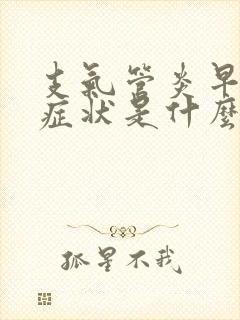 支氣管炎早
症狀是什麼
孤星不我